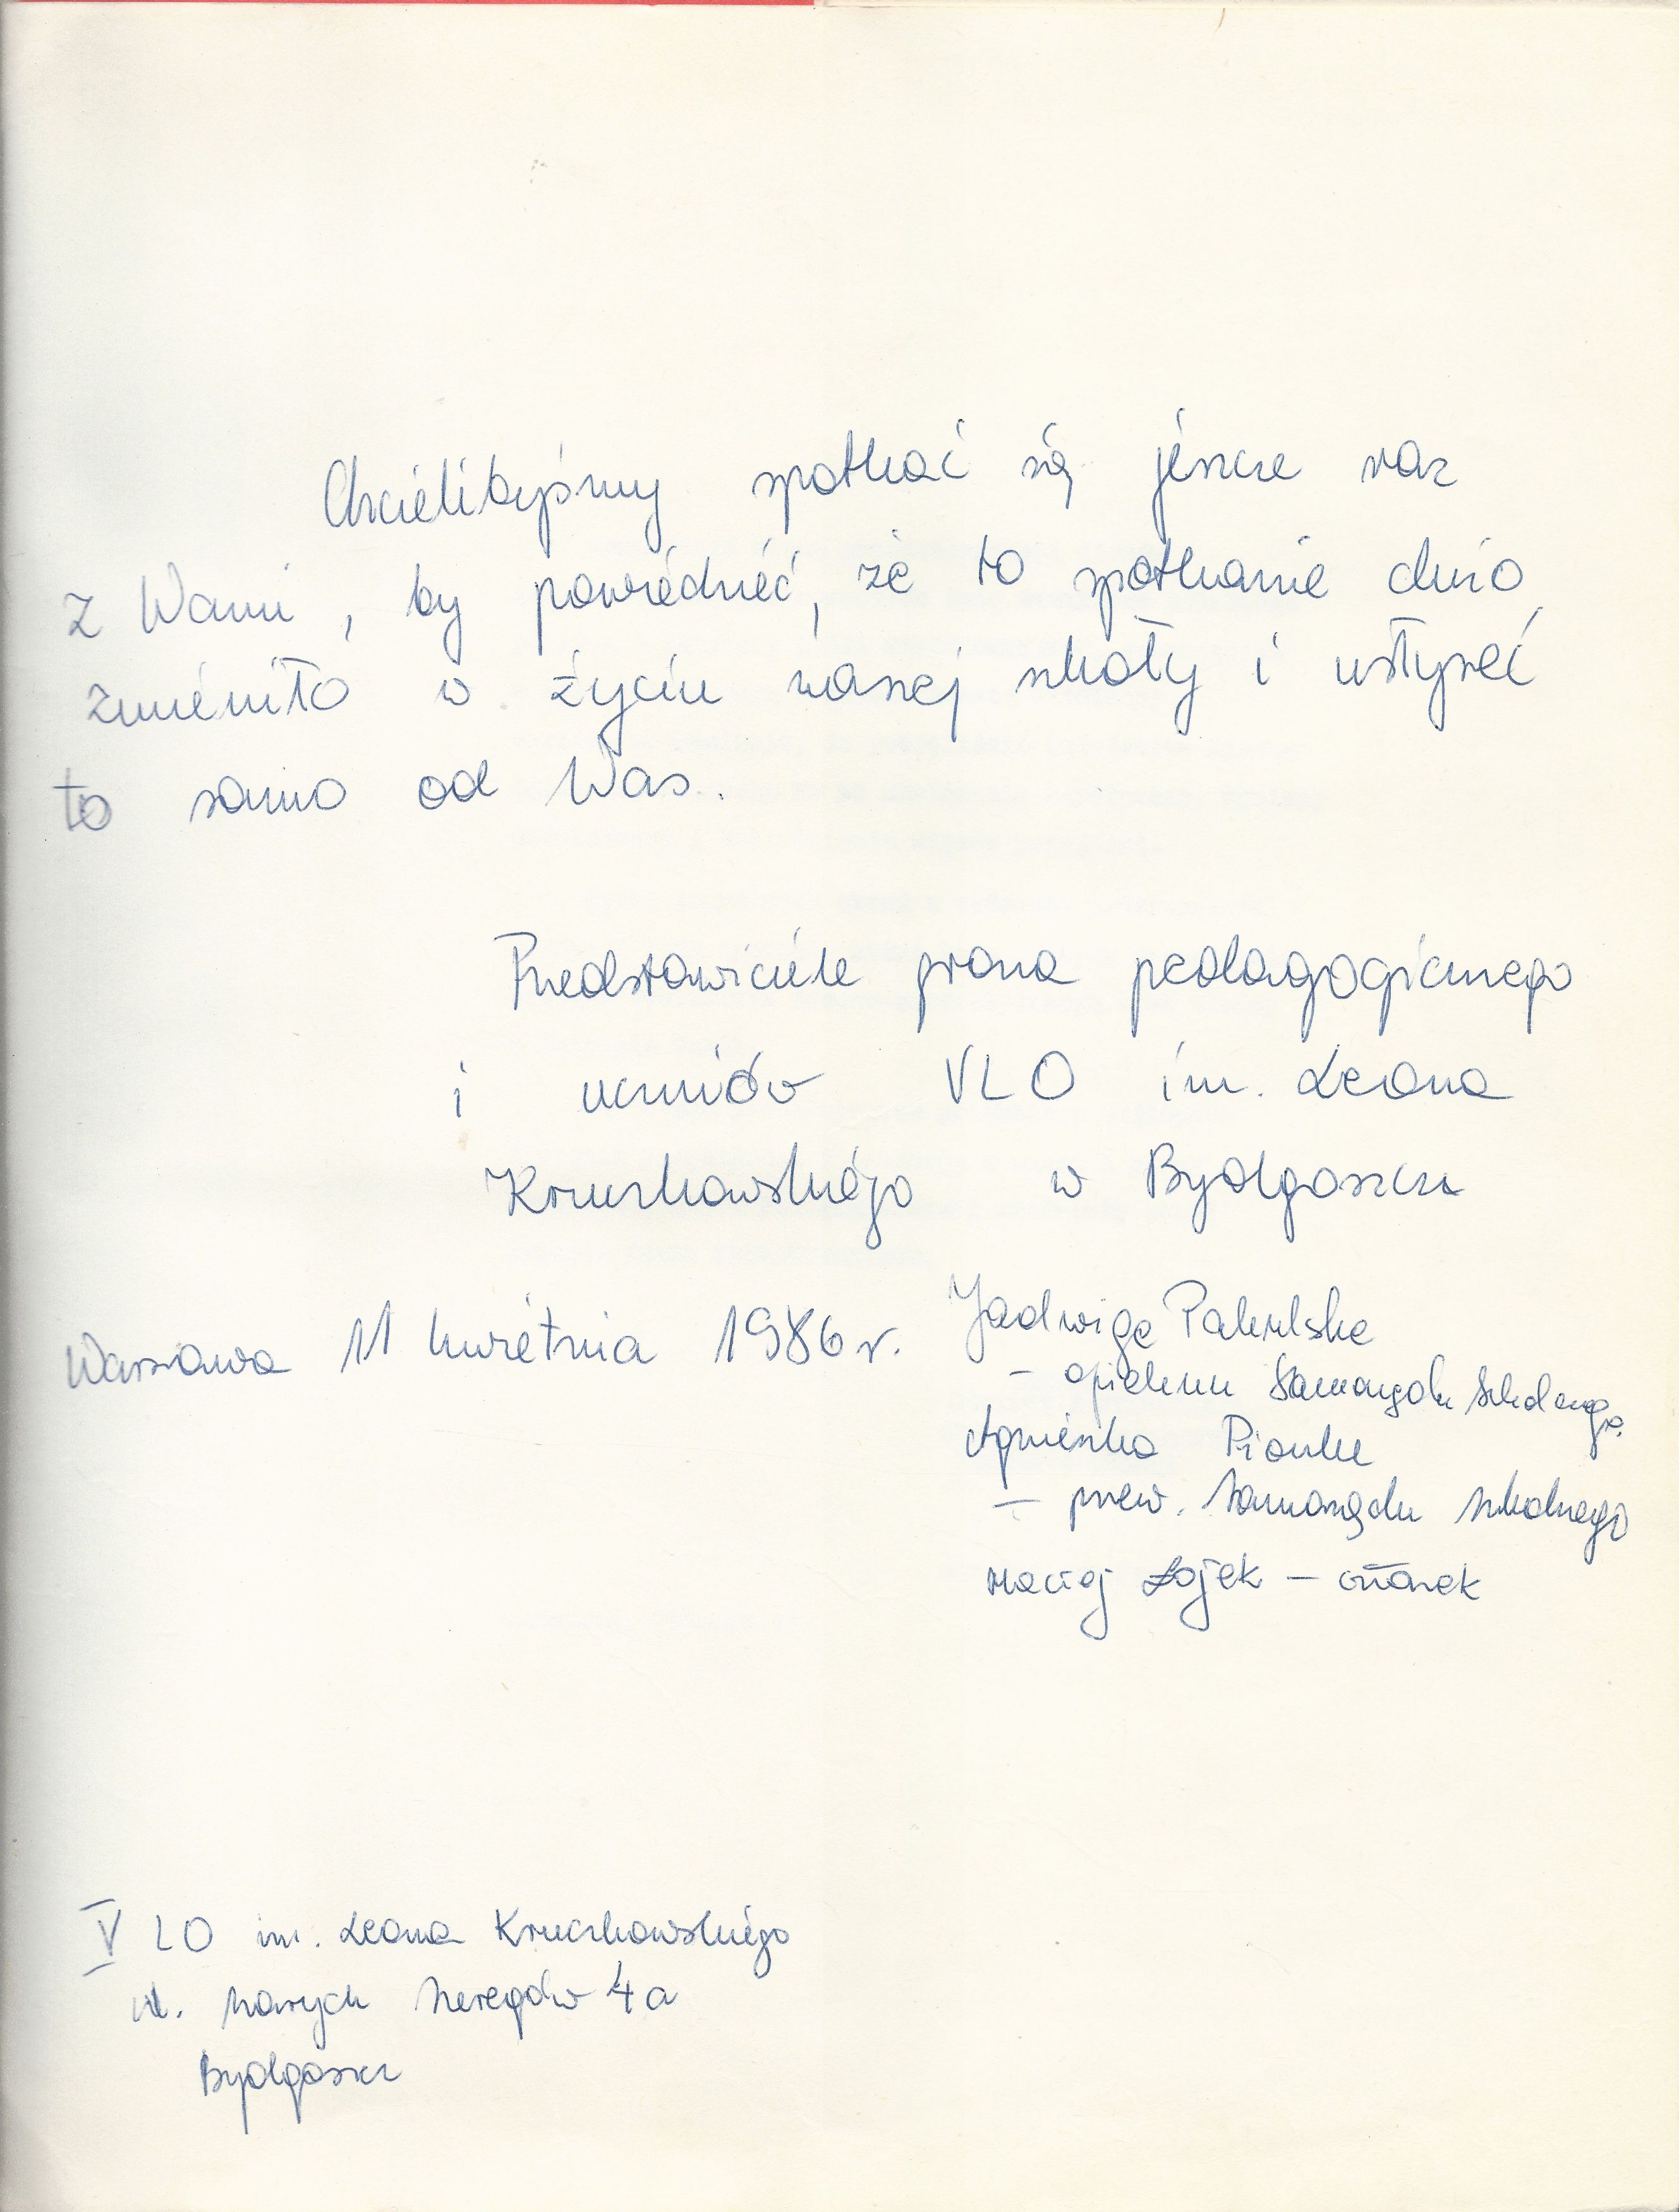 Chcielibyśmy spotkać się jeszcze raz
z Wami, by powiedzieć, że to spotkanie dużo
zmieniło w życiu naszej szkoły i usłyszeć
to samo od Was.
Przedstawiciele grona pedagogicznego
i uczniów VLO im. Leona
Kruczkowskiego w Bydgoszczu
Warszawa 11 kwietnia 1986 r.
Jadwiga Pakulska
- opiekun Samorządu Szkolnego
Agnieszka Pionke
- przew. Samorządu szkolnego
Maciej Łojek - członek
V LO im. Leona Kruczkowskiego
ul. Szarych Szeregów 4a
Bydgoszcz